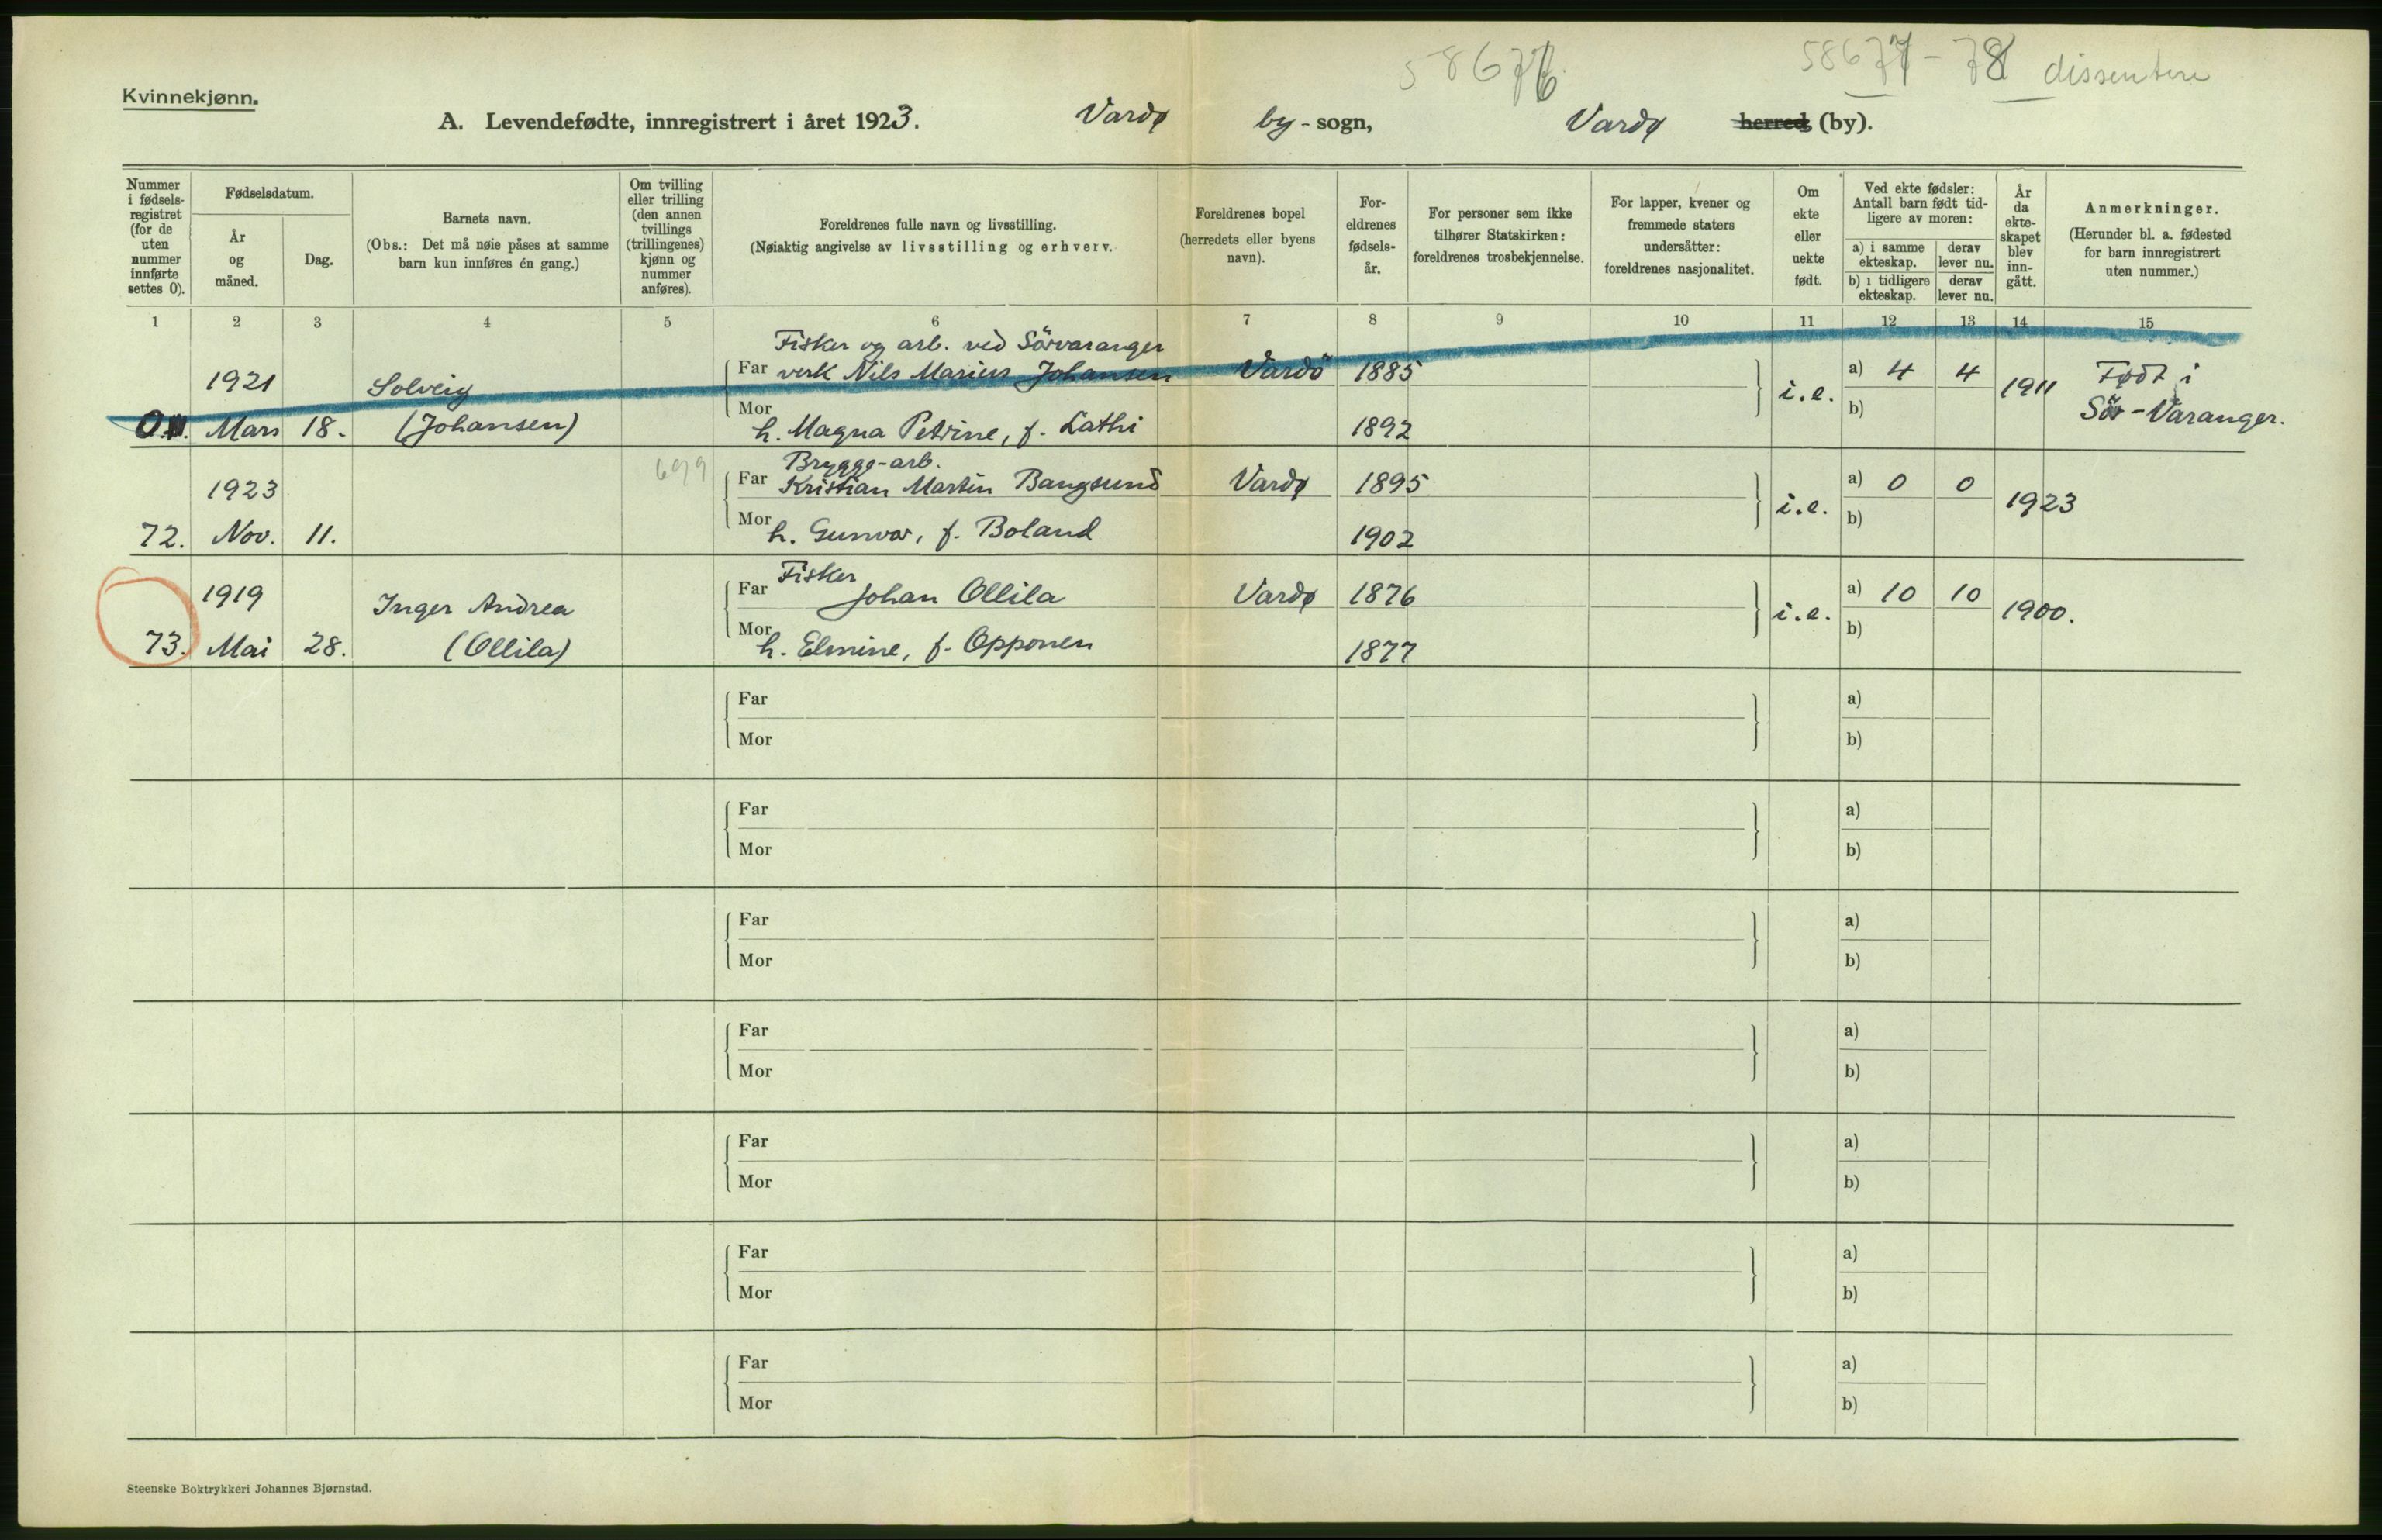 58676
58677-78 dissentere
Kvinnekjønn.
A. Levendefødte, innregistrert i året 1923. Vardø by-sogn, Vardø herred (by).
Nummer i fødselsregistret (for de uten nummer innførte settes 0).
Fødselsdatum.
År og måned.
Dag.
Barnets navn.
(Obs.: Det må nøie påses at samme barn kun innføres én gang.)
Om tvilling eller trilling (den annen tvillings (trillingenes) kjønn og nummer anføres).
Foreldrenes fulle navn og livsstilling.
(Nøiaktig angivelse av livsstilling og erhverv.
Foreldrenes bopel (herredets eller byens navn).
For-eldrenes fødsels-år.
For personer som ikke tilhører Statskirken: foreldrenes trosbekjennelse.
For lapper, kvener og fremmede staters undersåtter: foreldrenes nasjonalitet.
Om ekte eller uekte født.
Ved ekte fødsler: Antall barn født tid-ligere av moren:
a) i samme ekteskap.
derav lever nu.
b) i tidligere ekteskap.
derav lever nu.
År da ekte-skapet blev inn-gått.
Anmerkninger.
(Herunder bl. a. fødested for barn innregistrert uten nummer.)
1 2 3 4 5 6 7 8 9 10 11 12 13 14 15
Fisker og arb. ved Sörvaranger
1921 Solveig Far verk Nils Marius Johansen Vardö 1885 i.e. a) 4 4 1911 Født i
0. Mars 18. (Johansen) Mor h. Magna Petrine, f. Lathi 1892 b) Sör-Varanger.
699 Brygge-arb.
1923 Far Kristian Martin Bangsund Vardø 1895 i.e. a) 0 0 1923
72. Nov. 11. Mor h. Gunvor, f. Boland 1902 b)
Fisker
1919 Inger Andrea Far Johan Ollila Vardø 1876 i.e. a) 10 10 1900.
73. Mai 28. (Ollila) Mor h. Elmine, f. Opponen 1877 b)
Far a)
Mor b)
Far a)
Mor b)
Far a)
Mor b)
Far a)
Mor b)
Far a)
Mor b)
Far a)
Mor b)
Far a)
Mor b)
Steenske Boktrykkeri Johannes Bjørnstad.